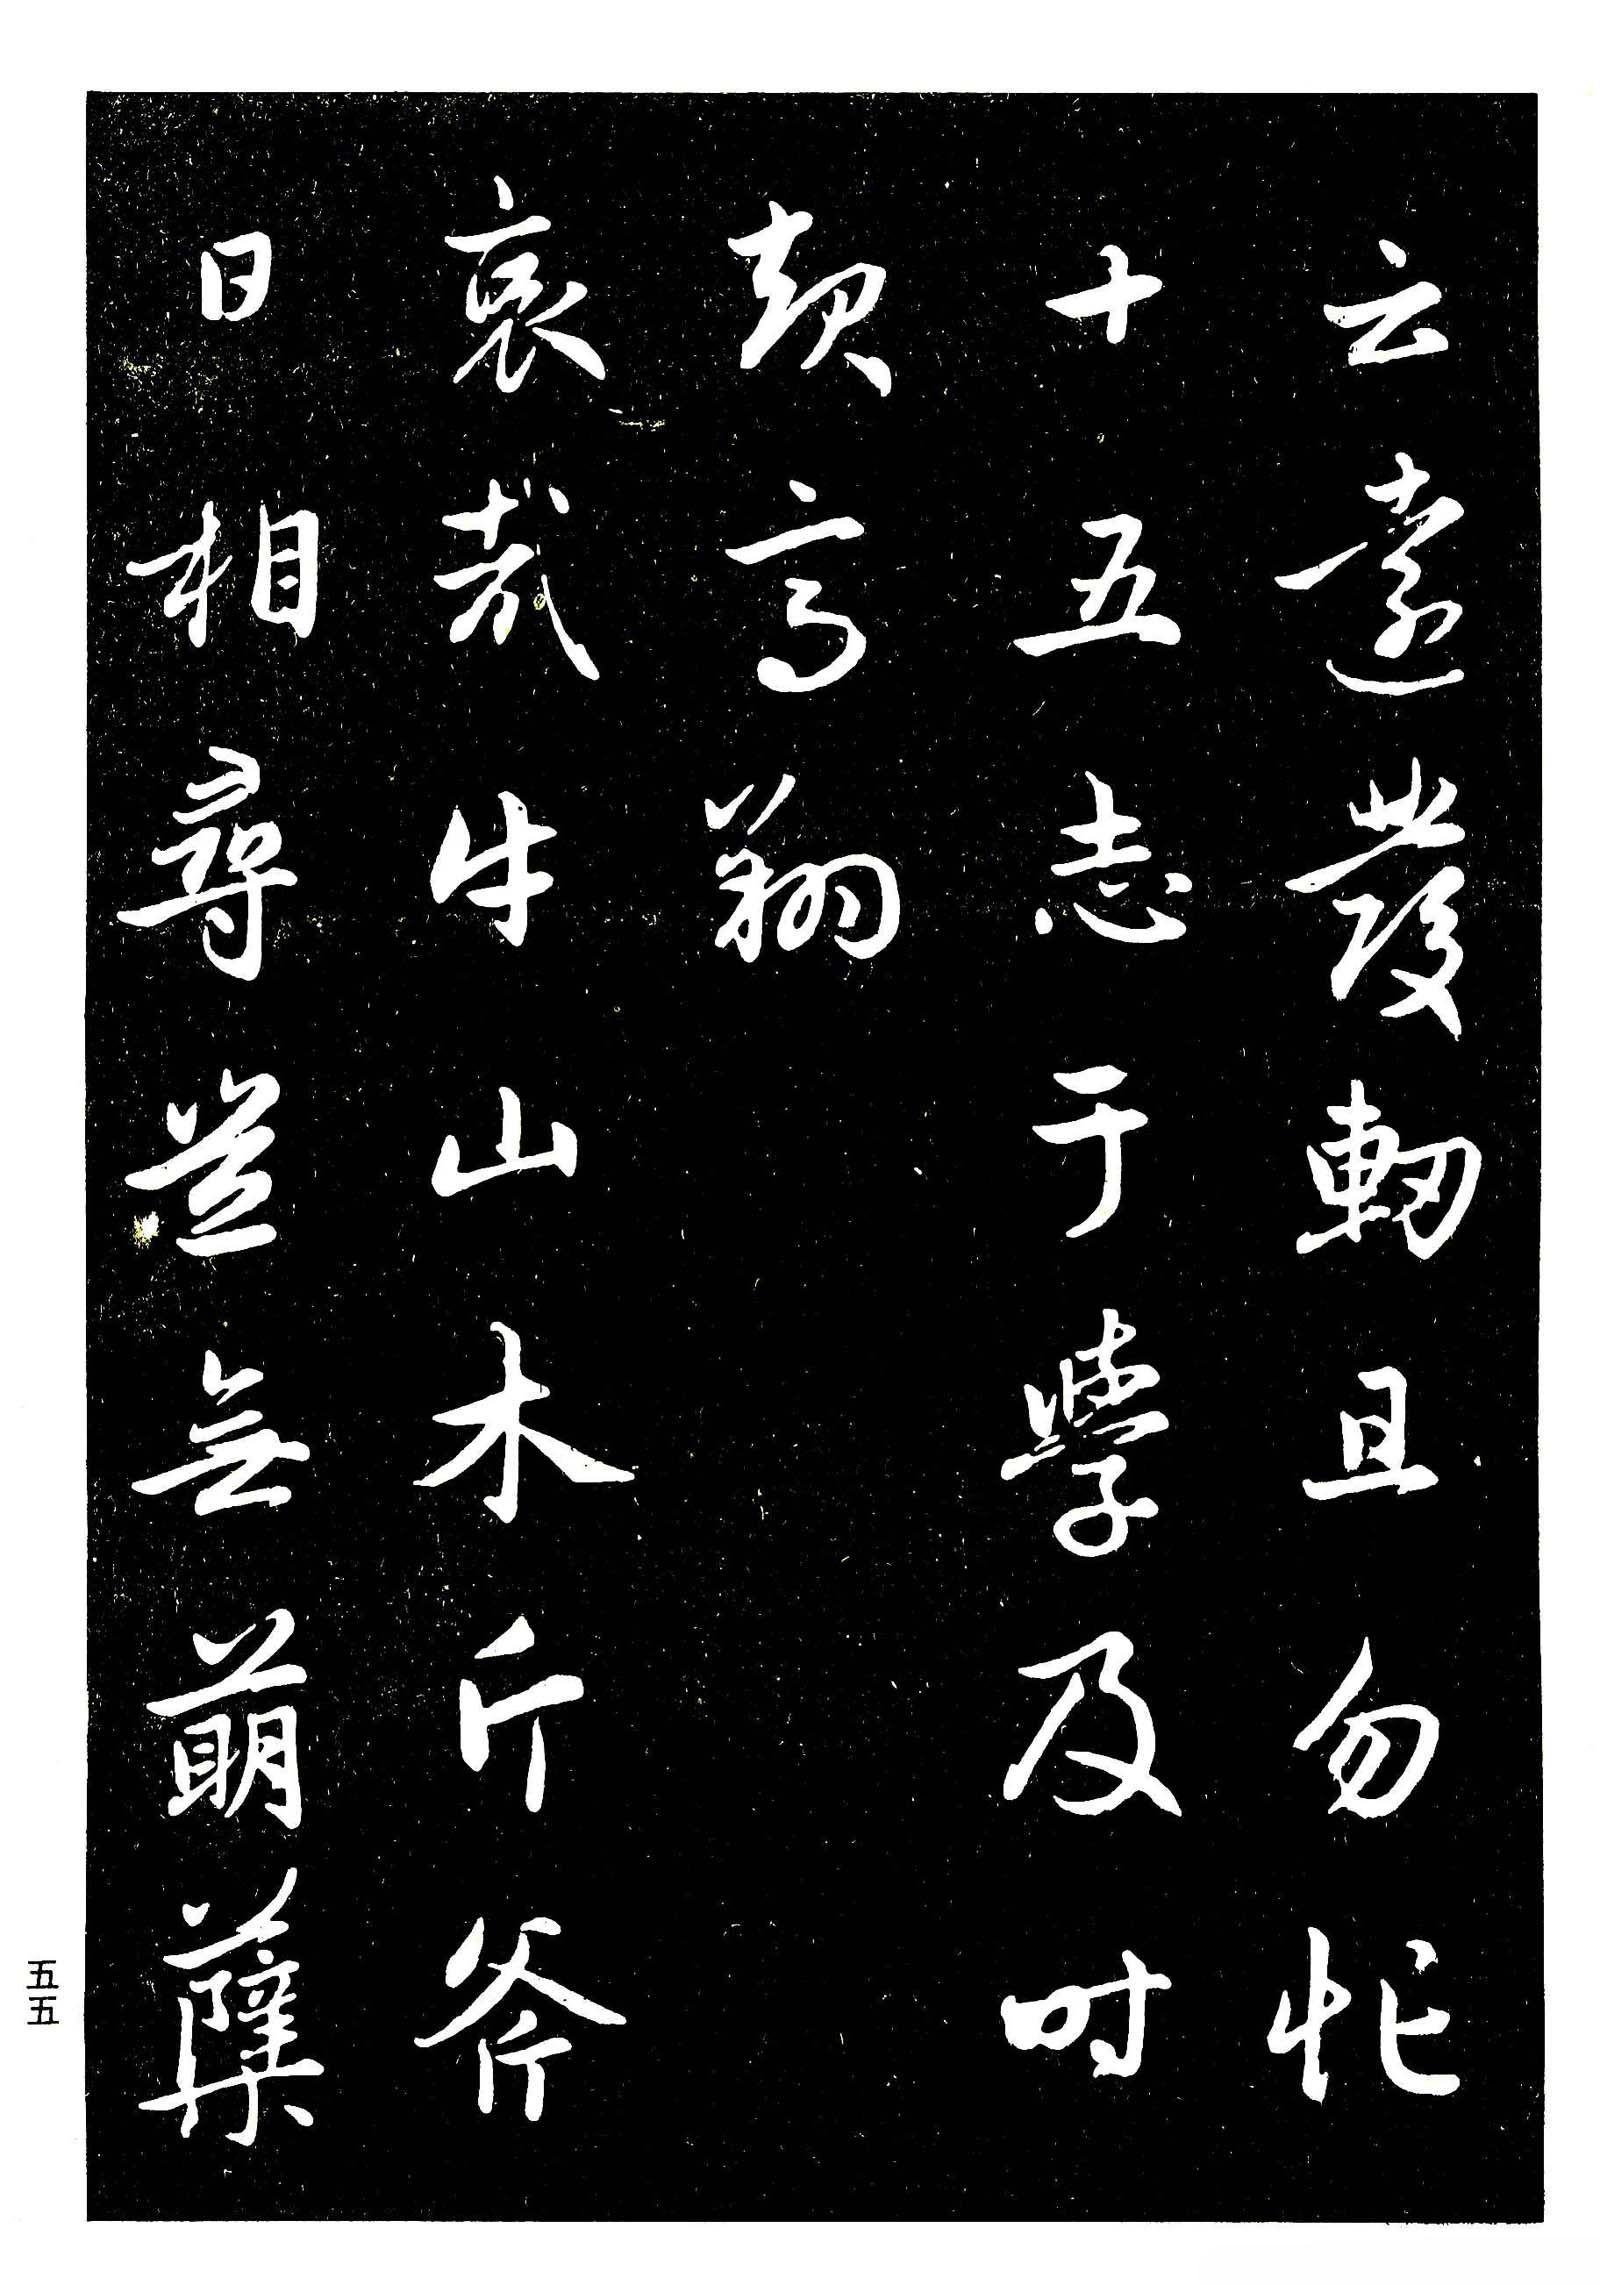 云遠發軔且勿忙
十五志于學及时
契高翔
哀哉牛山木斤斧
日相尋豈無萌蘖
五五